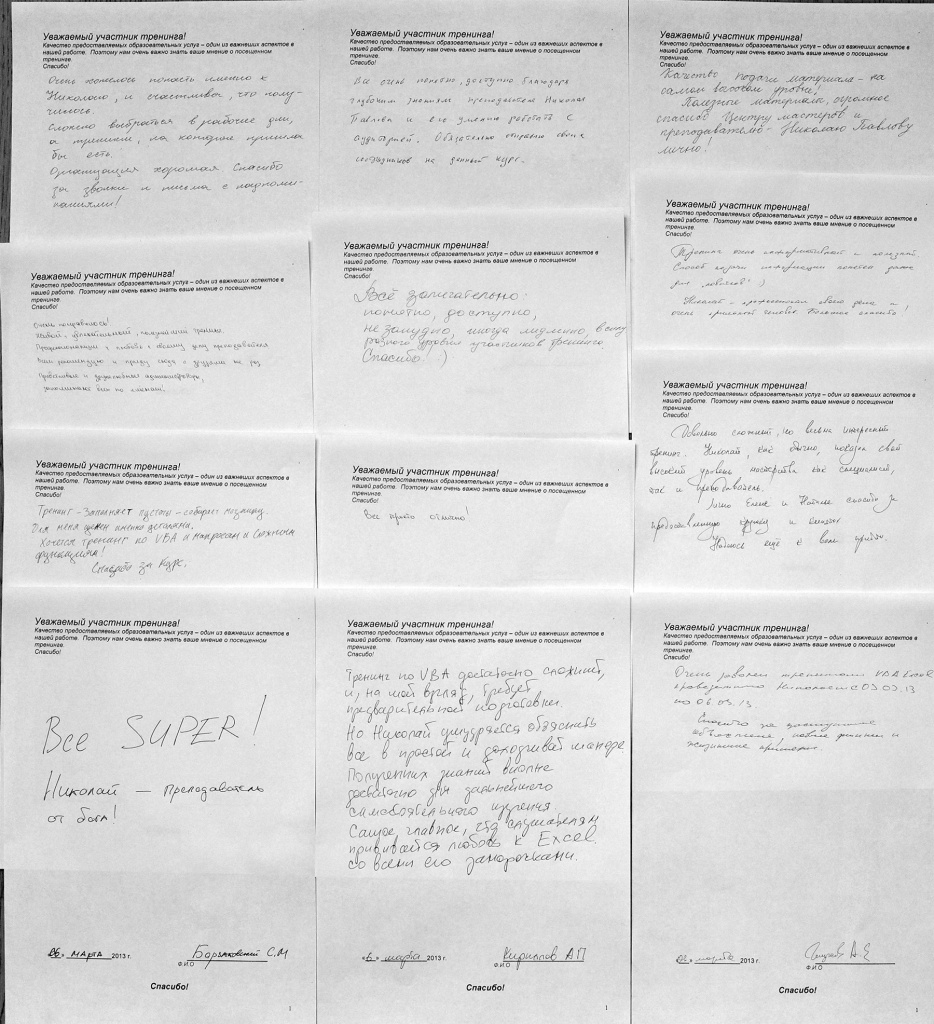 Уважаемый участник тренинга!
Качество предоставляемых образовательных услуг – один из важнейших аспектов в
нашей работе. Поэтому нам очень важно знать ваше мнение о посещенном
тренинге.
Спасибо!
Очень хотелось попасть именно к
Николаю, и счастлива, что полу-
чилось.
Сложно выбраться в рабочие дни,
а тренинги, на которые пришли
бы есть.
Организация хорошая Спасибо
за звонки и письма с напоми-
наниями!
Уважаемый участник тренинга!
Качество предоставляемых образовательных услуг – один из важнейших аспектов в
нашей работе. Поэтому нам очень важно знать ваше мнение о посещенном
тренинге.
Спасибо!
Очень понравилось!
Продолжающим с любовью к своему делу преподавателя
Всем рекомендую и приду сюда с друзьями не раз
администраторы,
Уважаемый участник тренинга!
Качество предоставляемых образовательных услуг – один из важнейших аспектов в
нашей работе. Поэтому нам очень важно знать ваше мнение о посещенном
тренинге.
Спасибо!
Тренинг - Заполняет пустоты - собирает мозаику.
Для меня ценен именно деталями.
Хочется тренинг по VBA и макросам и сложным
функциям!
Спасибо за курс.
Уважаемый участник тренинга!
Качество предоставляемых образовательных услуг – один из важнейших аспектов в
нашей работе. Поэтому нам очень важно знать ваше мнение о посещенном
тренинге.
Спасибо!
Все SUPER!
Николай — преподаватель
от бога!
«06» марта 2013 г.
С.М
Ф И О
Спасибо!
1
Уважаемый участник тренинга!
Качество предоставляемых образовательных услуг – один из важнейших аспектов в
нашей работе. Поэтому нам очень важно знать ваше мнение о посещенном
тренинге.
Спасибо!
Все очень понятно, доступно благодаря
глубоким знаниям преподавателя Николая
Павлова и его умению работать с
аудиторией. Обязательно отправлю своих
сотрудников на данный курс.
Уважаемый участник тренинга!
Качество предоставляемых образовательных услуг – один из важнейших аспектов в
нашей работе. Поэтому нам очень важно знать ваше мнение о посещенном
тренинге.
Спасибо!
Всё замечательно:
понятно, доступно,
не занудно, иногда медленно, в силу
разного уровня участников тренинга.
Спасибо! :)
Уважаемый участник тренинга!
Качество предоставляемых образовательных услуг – один из важнейших аспектов в
нашей работе. Поэтому нам очень важно знать ваше мнение о посещенном
тренинге.
Спасибо!
Все просто отлично!
Уважаемый участник тренинга!
Качество предоставляемых образовательных услуг – один из важнейших аспектов в
нашей работе. Поэтому нам очень важно знать ваше мнение о посещенном
тренинге.
Спасибо!
Тренинг по VBA достаточно сложный,
и, на мой взгляд, требует
предварительной подготовки.
Но Николай умудряется объяснить
все в простой и доходчивой манере
Полученных знаний вполне
достаточно для дальнейшего
самостоятельного изучения.
Самое главное, что слушателям
прививается любовь к Excel.
со всеми его заморочками.
«6» марта 2013 г.
Кириллов А П
Ф И О
Спасибо!
1
Уважаемый участник тренинга!
Качество предоставляемых образовательных услуг – один из важнейших аспектов в
нашей работе. Поэтому нам очень важно знать ваше мнение о посещенном
тренинге.
Спасибо!
Качество подачи материала - на
самом высоком уровне!
Полезные материалы, огромное
спасибо Центру мастеров и
преподавателю - Николаю Павлову
лично!
Уважаемый участник тренинга!
Качество предоставляемых образовательных услуг – один из важнейших аспектов в
нашей работе. Поэтому нам очень важно знать ваше мнение о посещенном
тренинге.
Спасибо!
Тренинг очень информативный и полезный.
Способ подачи информации понятен даже
для "новичков" :)
Николай - профессионал своего дела и
очень человек Большое спасибо!
Уважаемый участник тренинга!
Качество предоставляемых образовательных услуг – один из важнейших аспектов в
нашей работе. Поэтому нам очень важно знать ваше мнение о посещенном
тренинге.
Спасибо!
Довольно сложный, но весьма интересный
тренинг. Николай, как обычно, показал свой
высокий уровень мастерства как специалист,
так и преподаватель.
Елене и Наталье спасибо за
предоставленную и
Надеюсь ещё к вам прийти.
Уважаемый участник тренинга!
Качество предоставляемых образовательных услуг – один из важнейших аспектов в
нашей работе. Поэтому нам очень важно знать ваше мнение о посещенном
тренинге.
Спасибо!
Очень доволен тренингом VBA Excel
Николаем с 05.03.13
по 06.03.13.
Спасибо за доступные
объяснения, новые знания и
жизненные примеры.
«06» марта 2013 г.
А.Е
Ф И О
Спасибо!
1